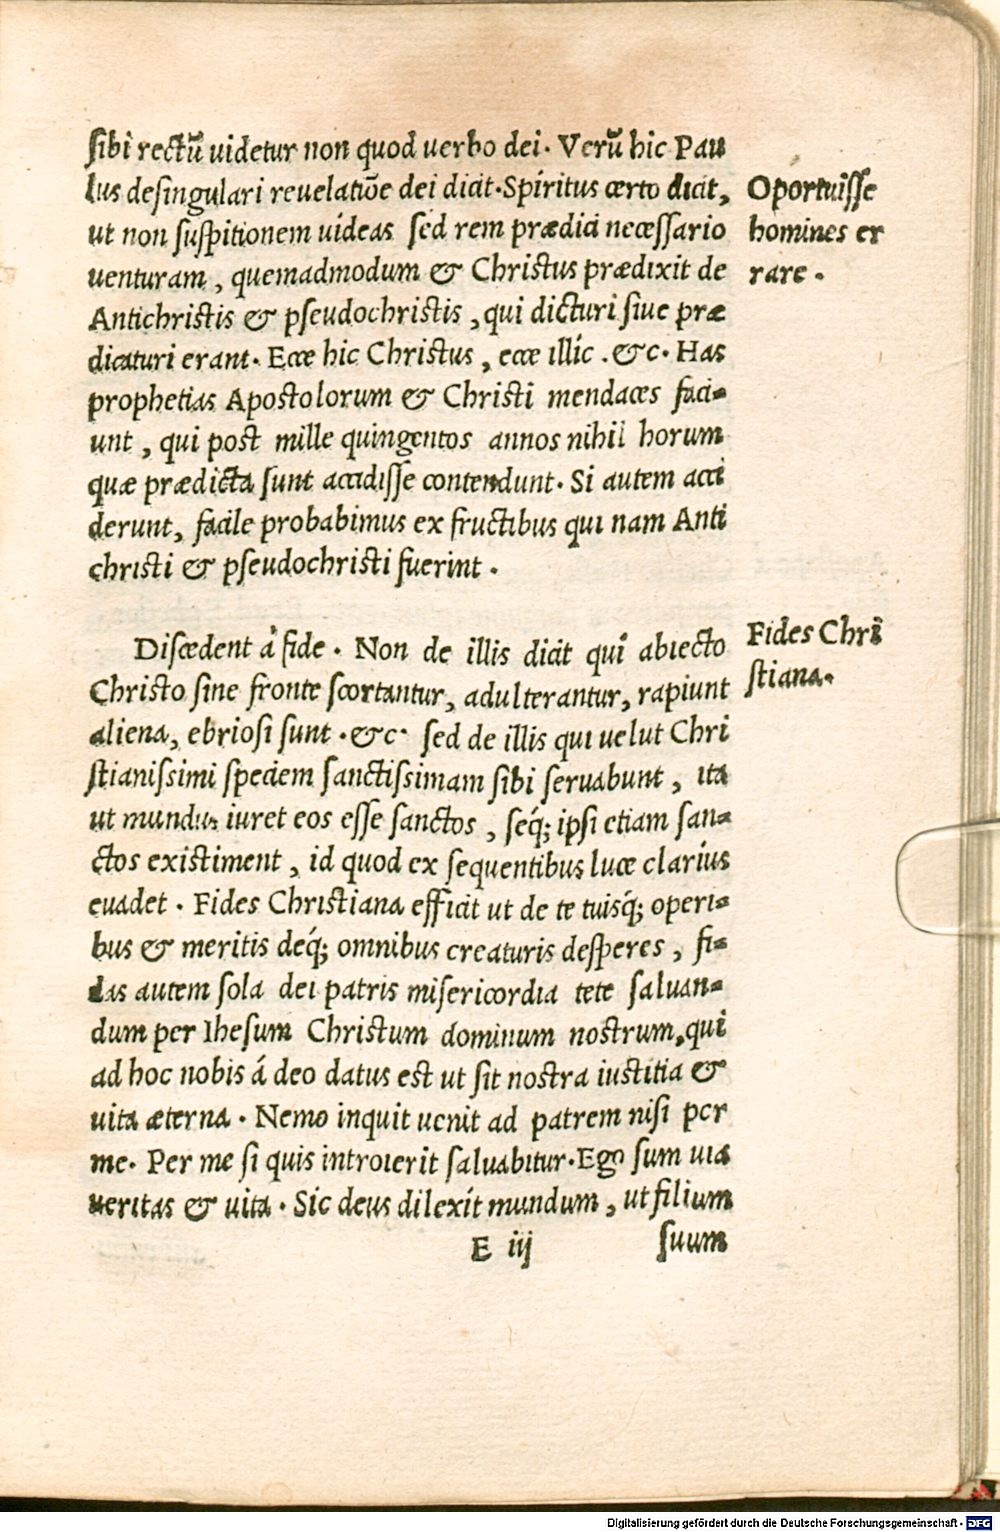 sibi rectũ uidetur non quod uerbo dei. Verũ hic Pau
lus desingulari reuelatiõe dei dicit. Spiritus certo dicit,
ut non suspitionem uideas sed rem prædici necessario
uenturam, quemadmodum & Christus prædixit de
Antichristis & pseudochristis, qui dicturi siue præ
dicaturi erant. Ecce hic Christus, ecce illic. &c. Has
prophetias Apostolorum & Christi mendaces faci-
unt, qui post mille quingentos annos nihil horum
quæ prædicta sunt accidisse contendunt. Si autem acci
derunt, facile probabimus ex fructibus qui nam Anti
christi & pseudochristi fuerint.
Oportuisse
homines er
rare.
Discedent à fide. Non de illis dicit qui abiecto
Christo sine fronte scortantur, adulterantur, rapiunt
aliena, ebriosi sunt. &c. sed de illis qui uelut Chri
stianissimi speciem sanctissimam sibi seruabunt, ita
ut mundus iuret eos esse sanctos, seq́; ipsi etiam san-
ctos existiment, id quod ex sequentibus luce clarius
euadet. Fides Christiana efficit ut de te tuisq́; operi-
bus & meritis deq́; omnibus creaturis desperes, fi-
das autem sola dei patris misericordia tete saluan-
dum per Ihesum Christum dominum nostrum, qui
ad hoc nobis á deo datus est ut sit nostra iustitia &
uita æterna. Nemo inquit uenit ad patrem nisi per
me. Per me si quis introierit saluabitur. Ego sum uia
ueritas & uita. Sic deus dilexit mundum, ut filium
Fides Chri
stiana.
E iij suum
Digitalisierung gefördert durch die Deutsche Forschungsgemeinschaft - DFG